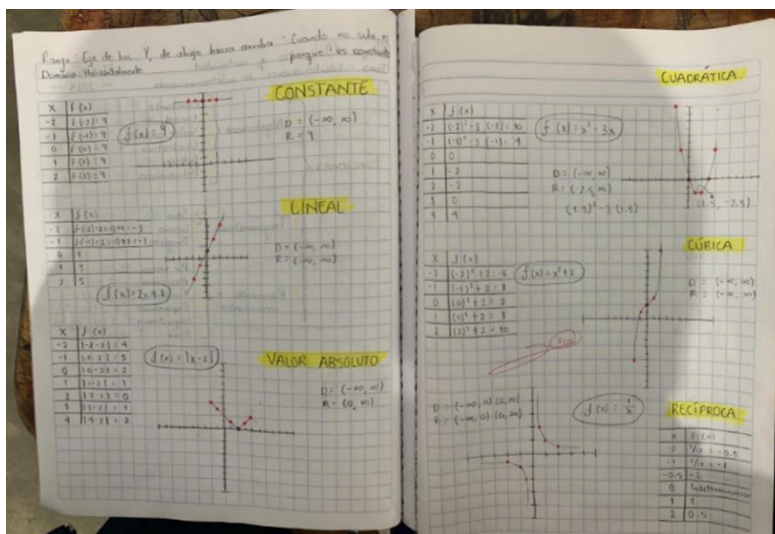 Rango: Eje de los Y, de abajo hacia arriba - Cuando no sube es
porque es constante
Dominio: Horizontalmente
CONSTANTE
x | f(x)
-2 | f(-2) = 9
-1 | f(-1) = 9
0 | f(0) = 9
1 | f(1) = 9
2 | f(2) = 9
f(x) = 9
D = (-∞, ∞)
R = 9
LINEAL
x | f(x)
-2
-1
0 | 1
1 | 3
2 | 5
f(x) = 2x+1
D = (-∞, ∞)
R = (-∞, ∞)
VALOR ABSOLUTO
x | f(x)
-2 | |-2-2| = 4
-1 | |-1-2| = 3
0 | |0-2| = 2
1 | |1-2| = 1
2 | |2-2| = 0
3 | |3-2| = 1
4 | |4-2| = 2
f(x) = |x-2|
D = (-∞, ∞)
R = (0, ∞)
CUADRÁTICA
x | f(x)
-2 | (-2)² - 3 (-2) = 10
-1 | (-1)² - 3 (-1) = 4
0 | 0
1 | -2
2 | -2
3 | 0
4 | 4
f(x) = x² - 3x
D = (-∞, ∞)
R = (-2.5, ∞)
(1.5)² - 3 (1.5)
(1.5, -2.5)
CÚBICA
x | f(x)
-2 | (-2)³ + 2 = -6
-1 | (-1)³ + 2 = 1
0 | (0)³ + 2 = 2
1 | (1)³ + 2 = 3
2 | (2)³ + 2 = 10
f(x) = x³ + 2
D = (-∞, ∞)
R = (-∞, ∞)
RECÍPROCA
D = (-∞, 0) (0, ∞)
R = (-∞, 0) (0, ∞)
f(x) = 1/x
x | f(x)
-2 | 1/-2 = -0.5
-1 | 1/-1 = -1
-0.5 | -2
0
1 | 1
2 | 0.5